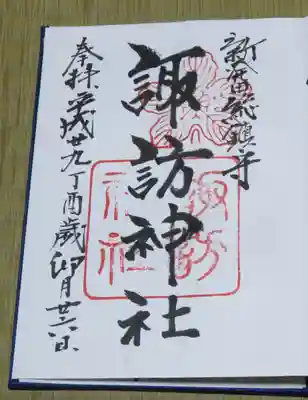 新発田総鎮守
諏訪神社
奉拝 平成廿九丁酉歳卯月廿六日
諏訪神社